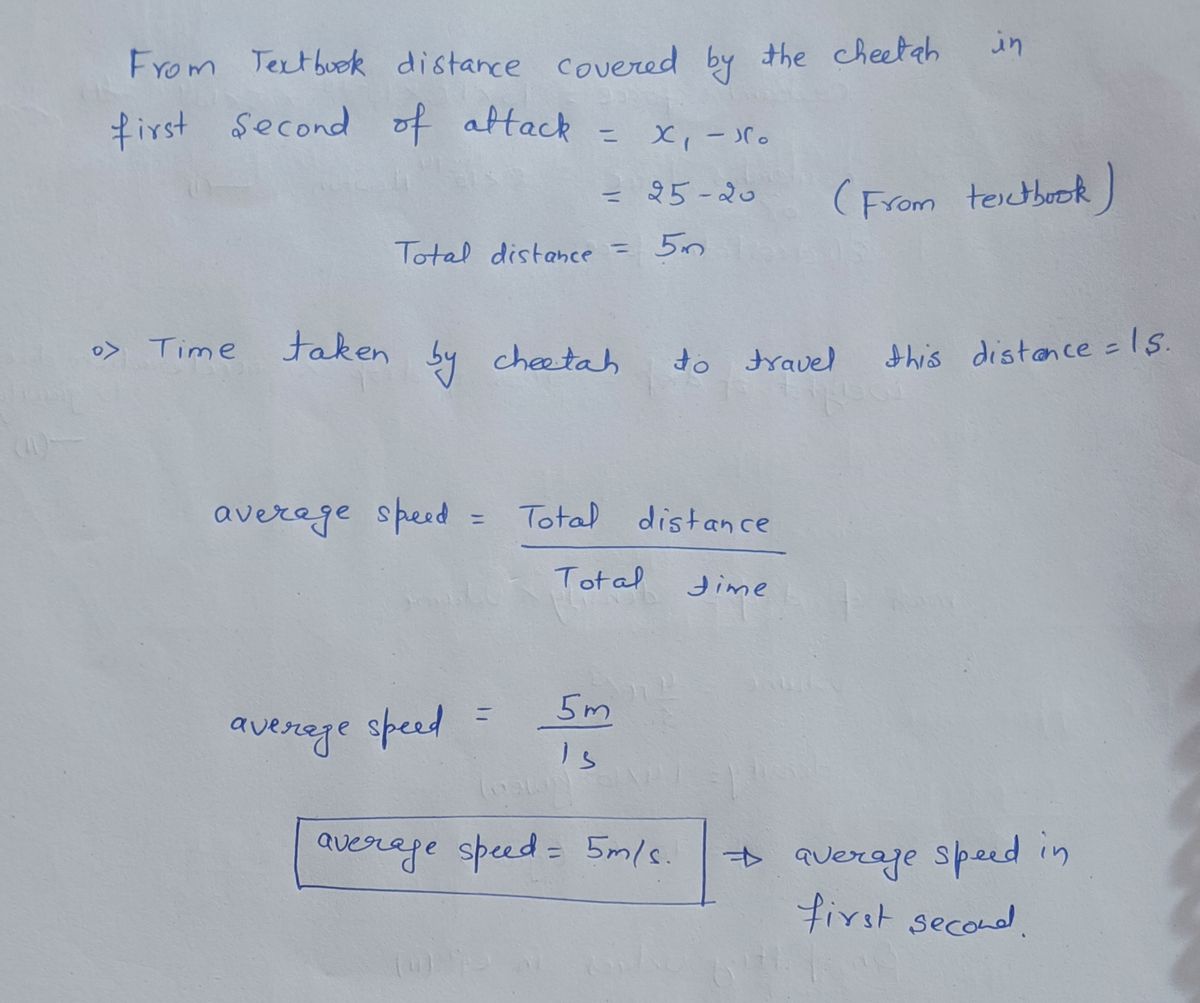 From Textbook distance covered by the cheetah in
first second of attack = x₁ - x₀
= 25-20 (From textbook)
Total distance = 5m
o> Time taken by cheetah to travel this distance = 1s.
average speed = Total distance
Total time
average speed = 5m
1s
average speed = 5m/s. ⇒ average speed in
first second.